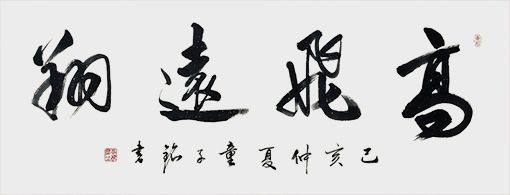 高飛遠翔
己亥仲夏童子銘書